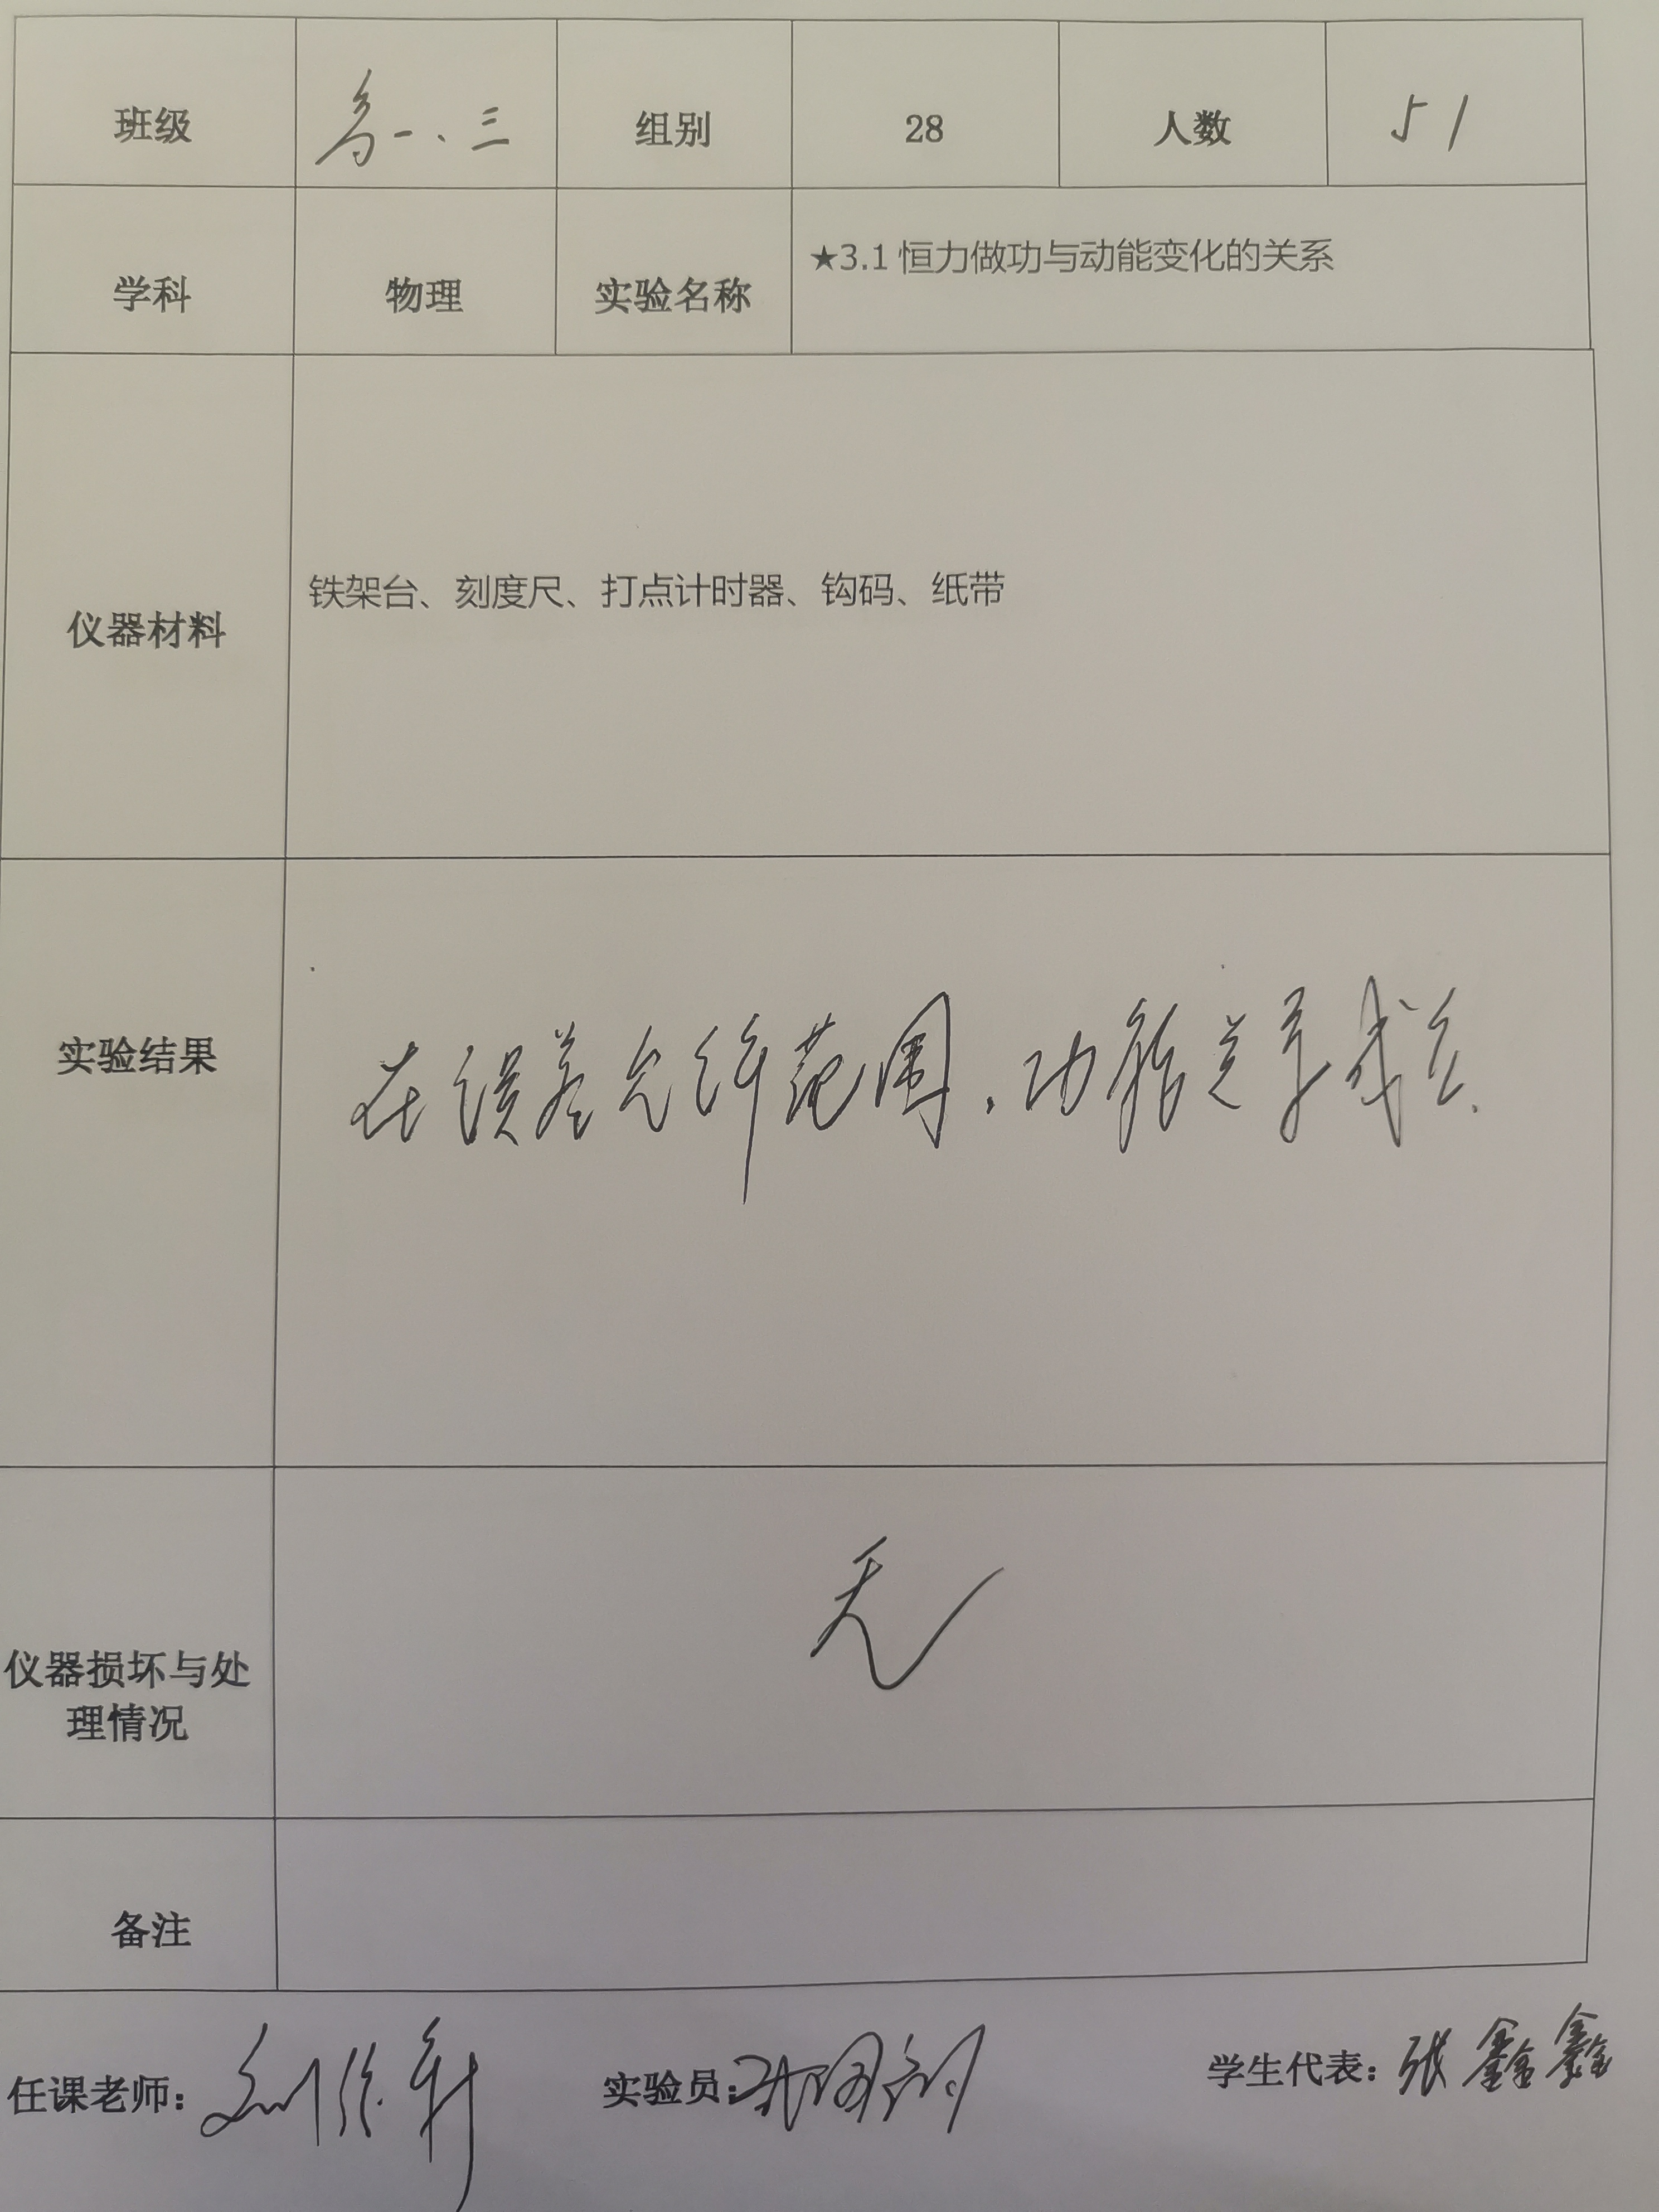 班级 高一、三 组别 28 人数 51
学科 物理 实验名称 ★3.1 恒力做功与动能变化的关系
仪器材料 铁架台、刻度尺、打点计时器、钩码、纸带
实验结果 在误差允许范围,功能关系成立.
仪器损坏与处
理情况 无
备注
任课老师: 刘 实验员: 学生代表: 张鑫鑫